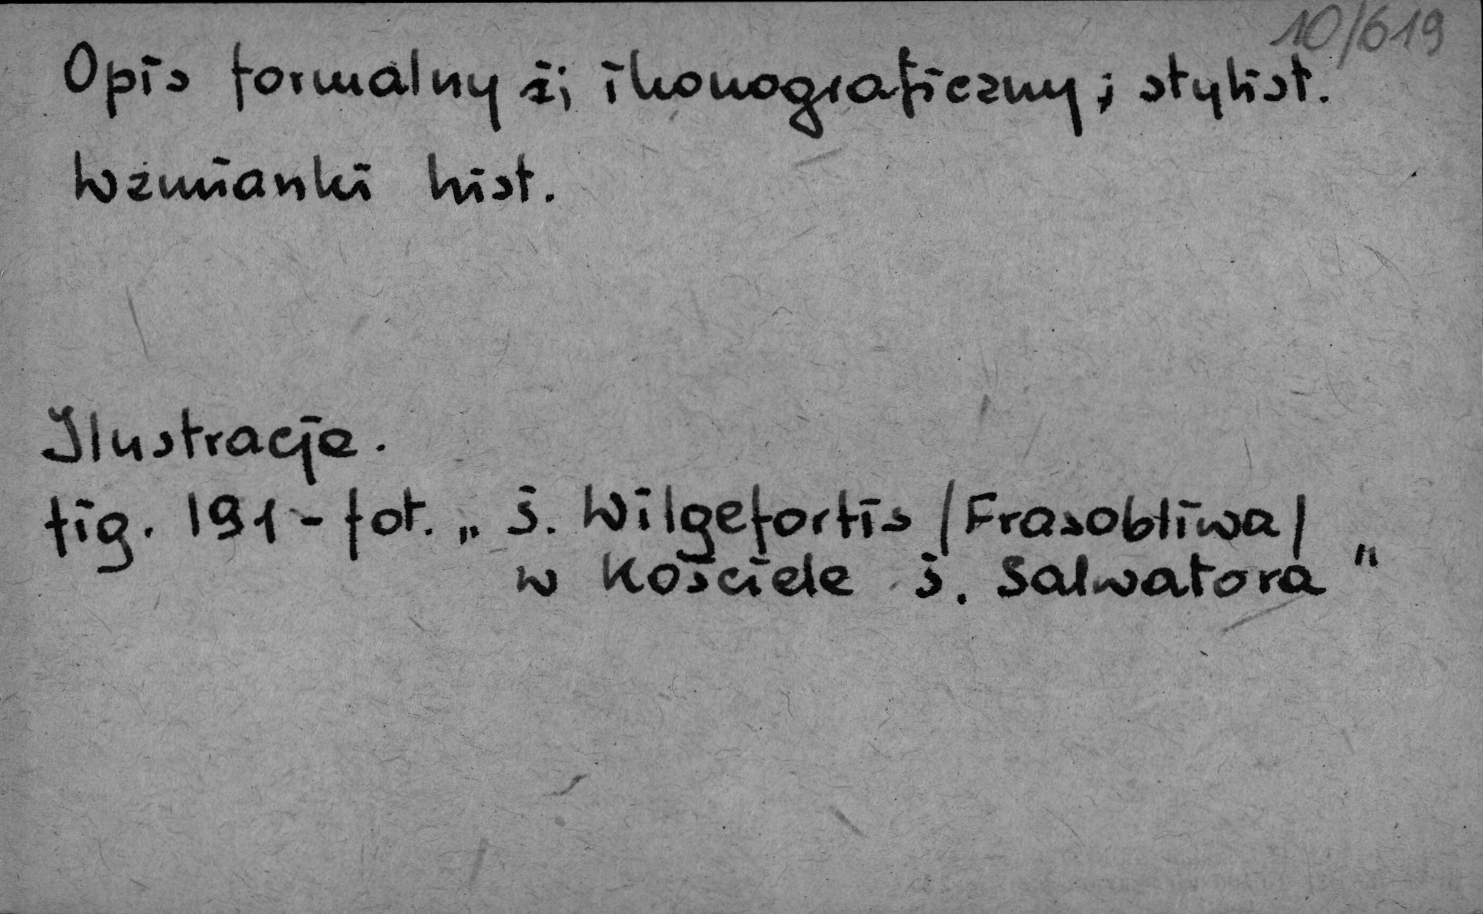 10/619
Opis formalny i ikonograficzny i stylist.
Wzmianki hist.
Ilustracje.
fig. 191 - fot. „ ś. Wilgefortis /Frasobliwa/
w Kościele ś. Salwatora "